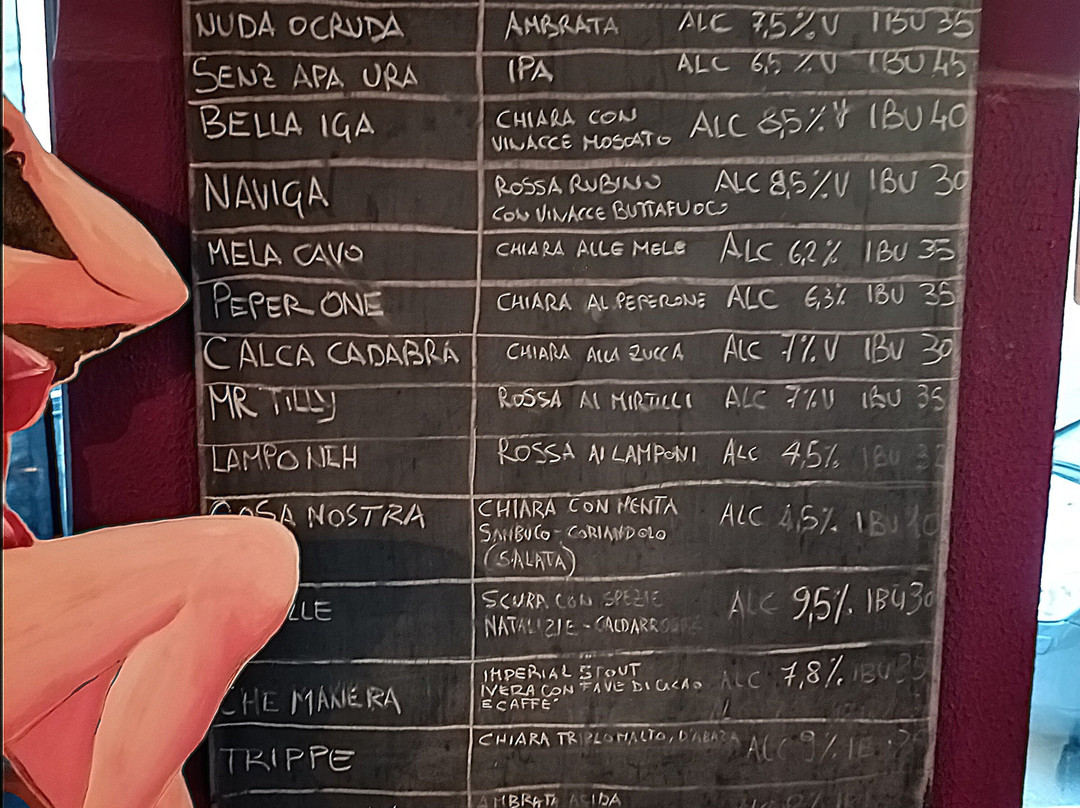 NUDA OCRUDA AMBRATA ALC 7,5%V IBU 35
SENZ APA URA IPA ALC 6,5 %V IBU 45
BELLA IGA CHIARA CON ALC 8,5%V IBU 40
VINACCE MOSCATO
NAVIGA ROSSA RUBINO ALC 8,5%V IBU 30
CON VINACCE BUTTAFUOCO
MELA CAVO CHIARA ALLE MELE ALC 6,2% IBU 35
PEPER ONE CHIARA AL PEPERONE ALC 6,3% IBU 35
CALCA CADABRA CHIARA ALLA ZUCCA ALC 7%V IBU 30
MR TILLY ROSSA AI MIRTILLI ALC 7%V IBU 35
LAMPONEH ROSSA AI LAMPONI ALC 4,5% IBU
COSA NOSTRA CHIARA CON MENTA ALC 4,5% IBU
SANBUCO - CORIANDOLO
(SALATA)
LLE SCURA CON SPEZIE ALC 9,5% IBU 30
NATALIZIE - CALDARROSTE
CHE MANERA IMPERIAL STOUT ALC 7,8% IBU 35
NERA CON FAVE DI CACAO
E CAFFE'
TRIPPE CHIARA TRIPLO MALTO, D'ABAZIA ALC 9%
AMBRATA ACIDA